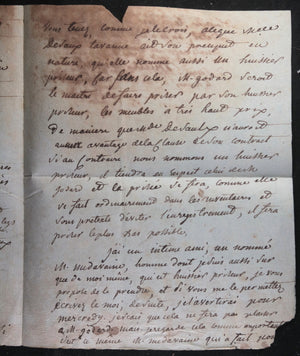 vous tenez, comme je le crois, a ce que
de Saulx tavanne ait son preciput en
nature, qu'elle nomme aussi un huissier
priseur, car sans cela, M. godard seroit
le maitre de faire priser par son huissier
priseur, les meubles a très haut prix,
de maniere que de Saulx n'auroit
aucun avantage de la clause de son contrat
si au contraire nous nommons un huissier
priseur, il tiendra en respect celui de M.
godard et la prisée se fera, comme elle
se fait ordinairement dans les inventaires et
sous pretexte d'eviter l'enregistrement, il fera
priser le plus bas possible.
j'ai un intime ami, un nommé
M. medavaine, homme dont je suis aussi sur
que de moi même, qui est huissier priseur, je vous
propose de le prendre, et si vous me le permettez
ecrivez le moi, de suite, je l'avertirai pour
mercredy. je scais que cela ne fera pas plaisir
a M. godard, mais regardé cela comme important
c'est ce même M. medavaine qui a fait